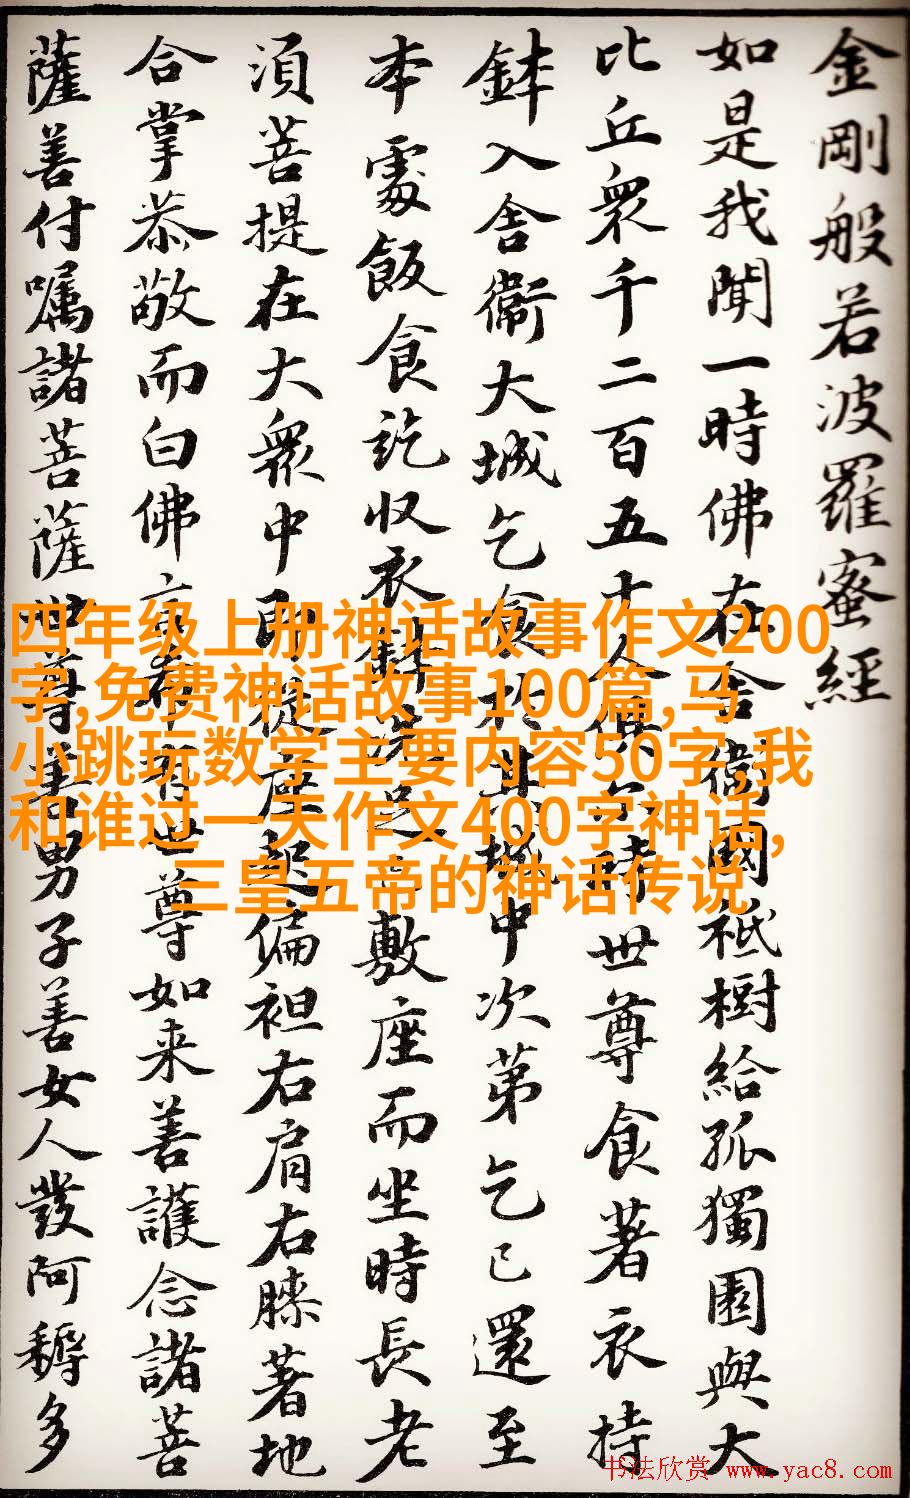 金剛般若波羅蜜經
如是我聞一時佛在舍衛國祇樹給孤獨園與大
比丘衆千二百五十人俱尒時世尊食著衣持
鉢入舍衛大城乞食於其城中次第乞已還至
本處飯食訖收衣鉢洗足已敷座而坐時長老
須菩提在大衆中即從座起偏袒右肩右膝著地
合掌恭敬而白佛言希有世尊如来善護念諸菩
薩善付嘱諸菩薩世尊善男子善女人發阿耨多
四年级上册神话故事作文200
字,免费神话故事100篇,马
小跳玩数学主要内容50字,我
和谁过一天作文400字神话,
三皇五帝的神话传说
书法欣赏 www.yac8.com